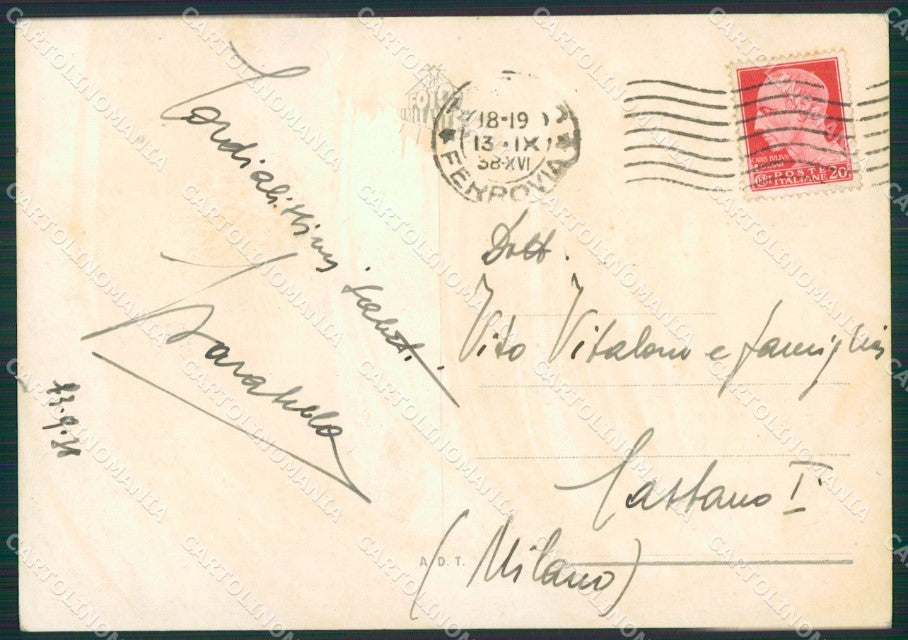 Cordialissimi saluti.
13.9.38
18-19
13 · IX
38·XVI
FERROVIA
POSTE
ITALIANE 20
Dott.
Vito Vitaloni e famiglia
Castano I°
(Milano)
A.D.T.
CARTOLINOMANIA